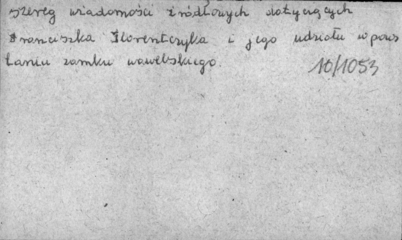 szereg wiadomości źródłowych dotyczących
Franciszka Florentczyka i jego udziału w pows
taniu zamku wawelskiego.
10/1053